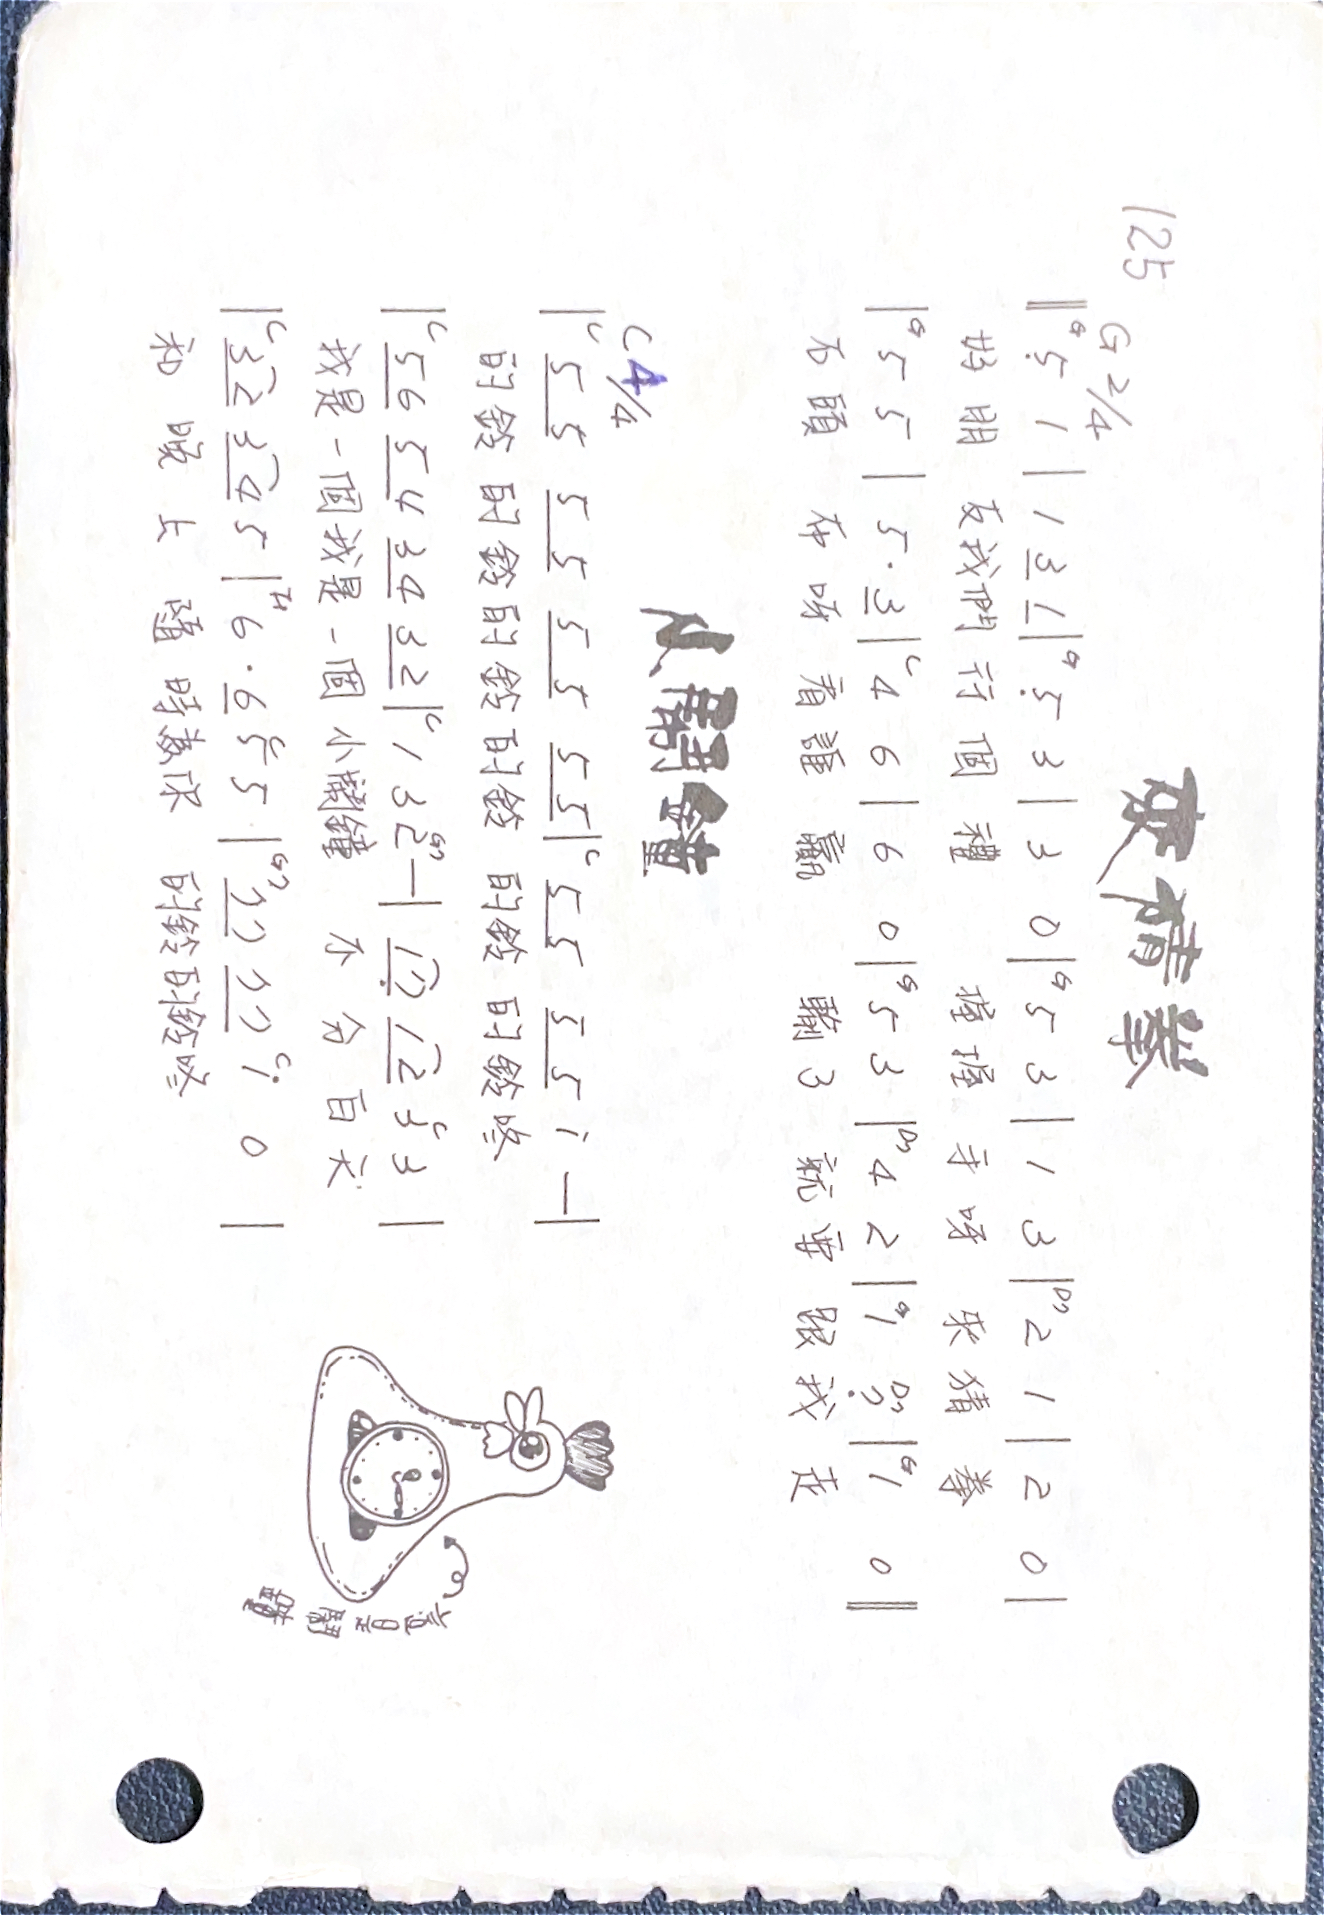 來猜拳
125
G 2/4
‖G 5̣ 1 | 1 3 1 |G 5̣ 3 | 3 0 |G 5 3 | 1 3 |D7 2 1 | 2 0 |
好朋 友我們 行個 禮 握握 手呀 來猜 拳
|G 5 5 | 5 · 3 |C 4 6 | 6 0 |G 5 3 |D7 4 2 |G 1 D7 7̣ |G 1 0 ‖
石頭 布呀 看誰 贏 輸了 就要 跟我 走
小鬧鐘
C 4/4
|C 5 5 5 5 5 5 5 5 |C 5 5 5 5 i — |
的鈴 的鈴 的鈴 的鈴 的鈴 的鈴咚
|C 5 6 5 4 3 4 3 2 |C 1 3 G7 2 — | 1 7̣ 1 2 C 3 3 |
我是一個我是一個 小鬧鐘 不 分 白天
|C 3 2 3 4 5 |F 6 · 6 C 5 5 |G7 7 7 7 7 C i 0 |
和 晚 上 隨 時為你 的鈴的鈴咚
這是鬧鐘